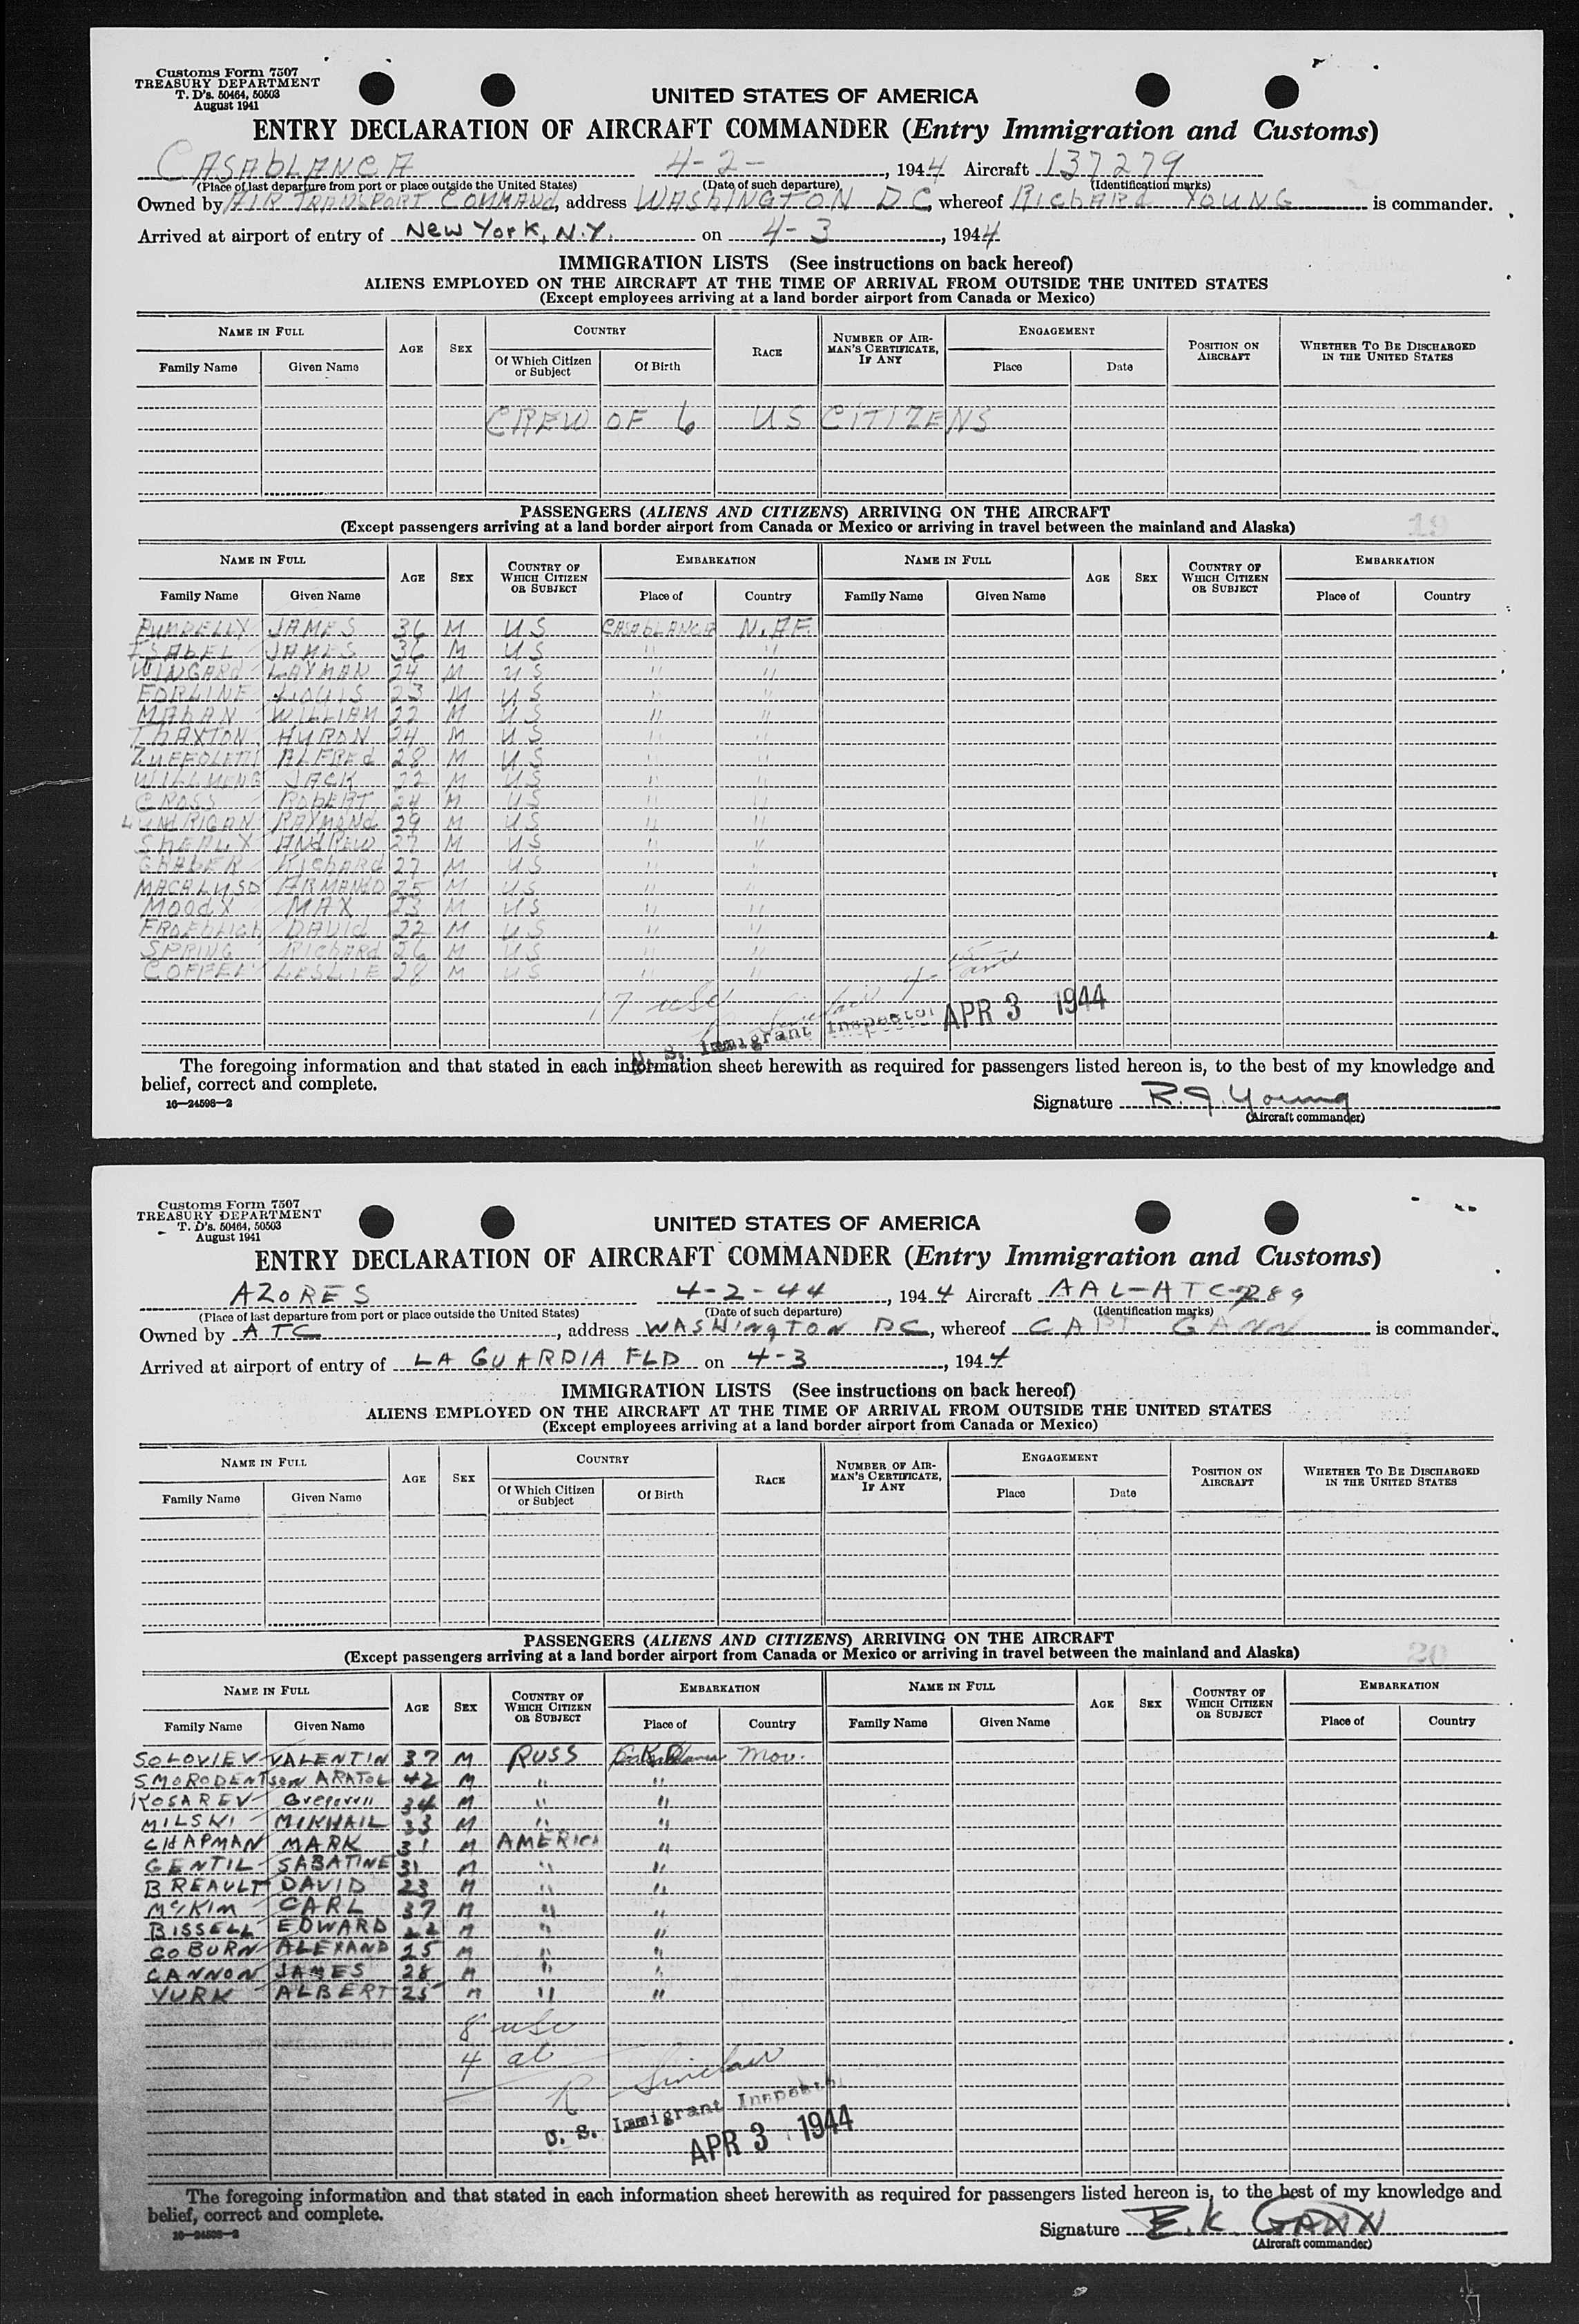 Customs Form 7507
TREASURY DEPARTMENT
T. D's. 50464, 50503
August 1941
UNITED STATES OF AMERICA
ENTRY DECLARATION OF AIRCRAFT COMMANDER (Entry Immigration and Customs)
CASAbLANCA 4-2- , 1944 Aircraft 137279
(Place of last departure from port or place outside the United States) (Date of such departure) (Identification marks)
Owned by AIR TRANSPORT COMMAND, address WAShINGTON DC, whereof RIChARd YOUNG is commander.
Arrived at airport of entry of New York, N.Y. on 4-3 , 1944
IMMIGRATION LISTS (See instructions on back hereof)
ALIENS EMPLOYED ON THE AIRCRAFT AT THE TIME OF ARRIVAL FROM OUTSIDE THE UNITED STATES
(Except employees arriving at a land border airport from Canada or Mexico)
NAME IN FULL AGE SEX COUNTRY RACE NUMBER OF AIRMAN'S CERTIFICATE, IF ANY ENGAGEMENT POSITION ON AIRCRAFT WHETHER TO BE DISCHARGED IN THE UNITED STATES
Family Name Given Name Of Which Citizen or Subject Of Birth Place Date
CREW OF 6 US CITIZENS
PASSENGERS (ALIENS AND CITIZENS) ARRIVING ON THE AIRCRAFT
(Except passengers arriving at a land border airport from Canada or Mexico or arriving in travel between the mainland and Alaska)
19
NAME IN FULL AGE SEX COUNTRY OF WHICH CITIZEN OR SUBJECT EMBARKATION NAME IN FULL AGE SEX COUNTRY OF WHICH CITIZEN OR SUBJECT EMBARKATION
Family Name Given Name Place of Country Family Name Given Name Place of Country
PUMPELLY JAMES 36 M US CASAbLANCA N.AF.
ISAbEL JAMES 36 M US " "
WINGARd LAYMAN 24 M US " "
LOUIS 23 M US " "
MAhAN WILLIAM 22 M US " "
ThAXTON HYRON 24 M US " "
ZUFFOLETTI ALFREd 28 M US " "
JACK 22 M US " "
CROSS RObERT 24 M US " "
LUNdRIGAN RAYMONd 29 M US " "
ShEALY ANdREW 27 M US " "
GRAbER RIChARd 27 M US " "
MACALUSO ARMANdO 25 M US " "
MOOdY MAX 23 M US " "
FROEhLICh DAVId 22 M US " "
SPRING RIChARd 26 M US " "
COFFEEY LESLIE 28 M US " "
17 usc
R Sinclair
U. S. Immigrant Inspector APR 3 1944
The foregoing information and that stated in each information sheet herewith as required for passengers listed hereon is, to the best of my knowledge and
belief, correct and complete.
16—24598—2
Signature R. J. Young
(Aircraft commander)
Customs Form 7507
TREASURY DEPARTMENT
T. D's. 50464, 50503
August 1941
UNITED STATES OF AMERICA
ENTRY DECLARATION OF AIRCRAFT COMMANDER (Entry Immigration and Customs)
AZORES 4-2-44 , 1944 Aircraft AAL-ATC-289
(Place of last departure from port or place outside the United States) (Date of such departure) (Identification marks)
Owned by ATC , address WASHINgTON DC, whereof CAPT GANN is commander.
Arrived at airport of entry of LA GUARDIA FLD on 4-3 , 1944
IMMIGRATION LISTS (See instructions on back hereof)
ALIENS EMPLOYED ON THE AIRCRAFT AT THE TIME OF ARRIVAL FROM OUTSIDE THE UNITED STATES
(Except employees arriving at a land border airport from Canada or Mexico)
NAME IN FULL AGE SEX COUNTRY RACE NUMBER OF AIRMAN'S CERTIFICATE, IF ANY ENGAGEMENT POSITION ON AIRCRAFT WHETHER TO BE DISCHARGED IN THE UNITED STATES
Family Name Given Name Of Which Citizen or Subject Of Birth Place Date
PASSENGERS (ALIENS AND CITIZENS) ARRIVING ON THE AIRCRAFT
(Except passengers arriving at a land border airport from Canada or Mexico or arriving in travel between the mainland and Alaska)
20
NAME IN FULL AGE SEX COUNTRY OF WHICH CITIZEN OR SUBJECT EMBARKATION NAME IN FULL AGE SEX COUNTRY OF WHICH CITIZEN OR SUBJECT EMBARKATION
Family Name Given Name Place of Country Family Name Given Name Place of Country
SOLOVIEV VALENTIN 37 M RUSS Mov.
SMORODENTSEN ARATOL 42 M " "
KOSAREV Gregorrii 34 M " "
MILSKI MIKHAIL 33 M " "
CHAPMAN MARK 31 M AMERICA "
GENTIL SABATINE 31 M " "
BREAULT DAVID 23 M " "
McKIM CARL 37 M " "
BISSELL EDWARD 22 M " "
COBURN ALEXAND 25 M " "
CANNON JAMES 28 M " "
YURK ALBERT 25 M " "
8 usc
4 al
R Sinclair
U. S. Immigrant Inspector
APR 3 1944
The foregoing information and that stated in each information sheet herewith as required for passengers listed hereon is, to the best of my knowledge and
belief, correct and complete.
16—24598—2
Signature E. K. GANN
(Aircraft commander)